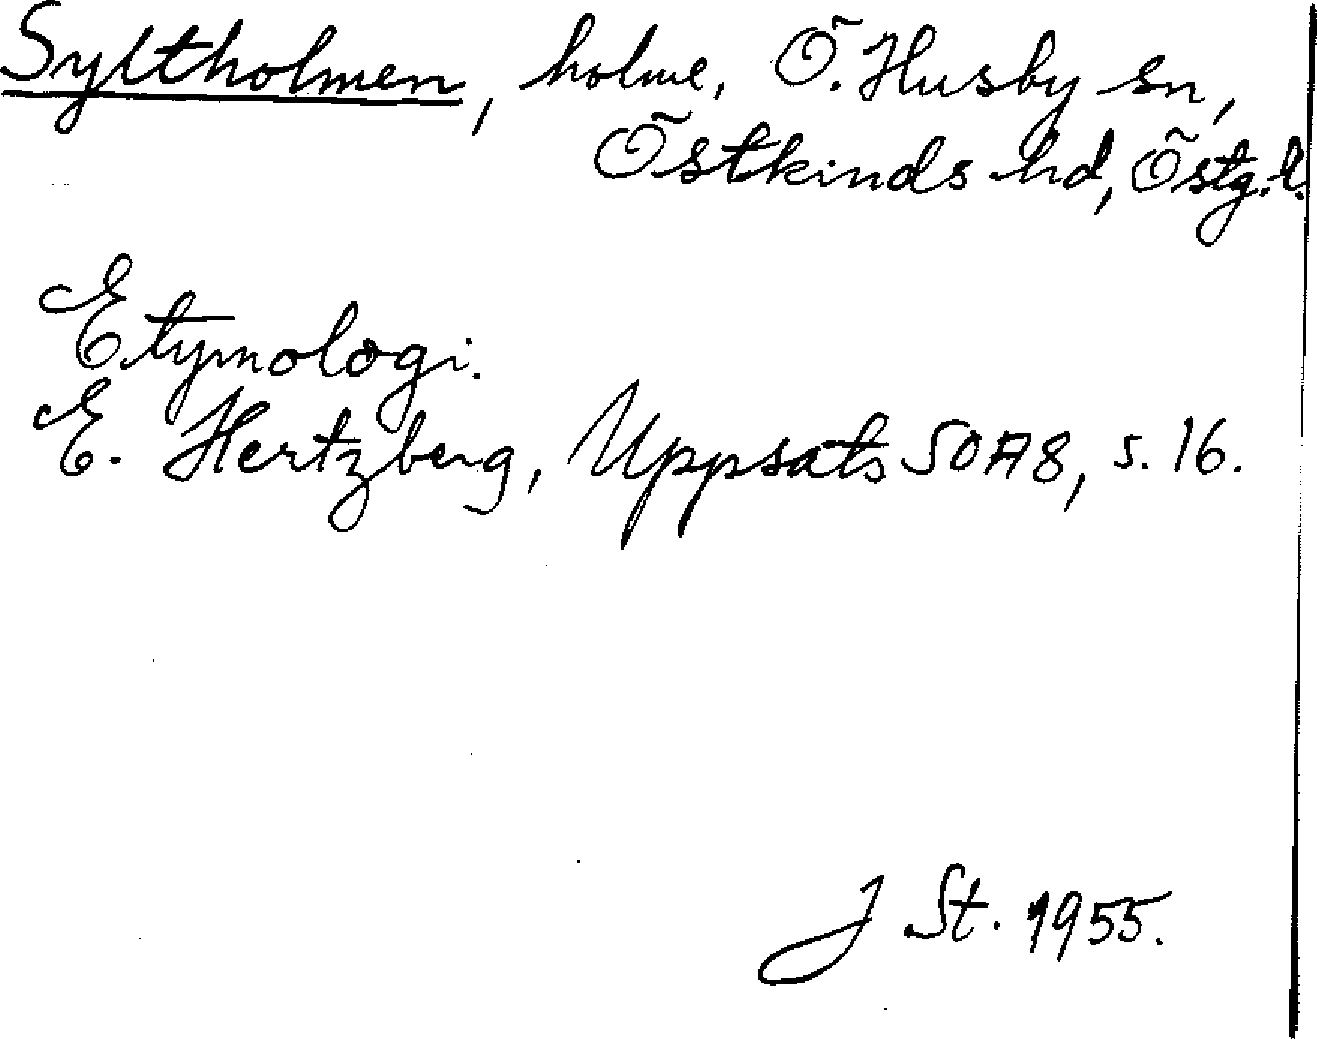 Syltholmen, holme, Ö. Husby sn,
Östkinds hd, Östg. l.
Etymologi.
E. Hertzberg, Uppsats SOA8, s. 16.
J St. 1955.